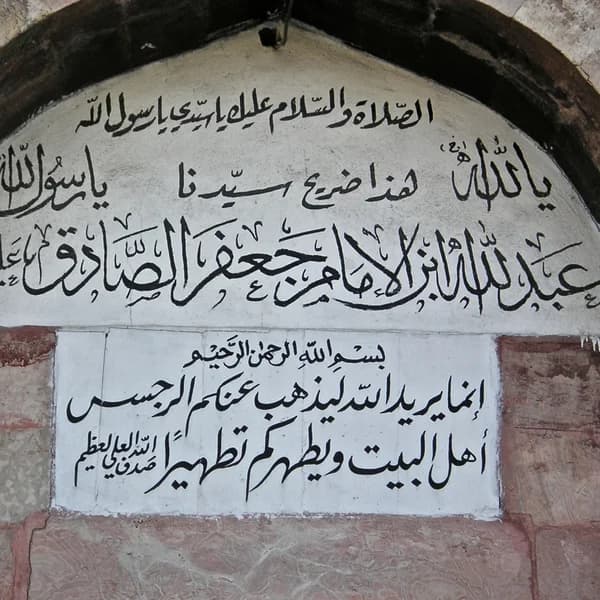 الصّلاة والسّلام عليك يا سيّدي يا رسول اللّه
يا اللّٰه هذا ضريح سيّدنا يا رسُول اللّٰه
عَبْدُ للّٰه ابن الإمام جَعفَر الصَّادق
بسْمِ اللّٰهِ الرحمٰن الرَّحيْم
إنما يريد اللّٰه ليذهب عنكم الرجس
أهل البيت ويطهركم تطهيرًا صدق اللّٰه العلي العظيم